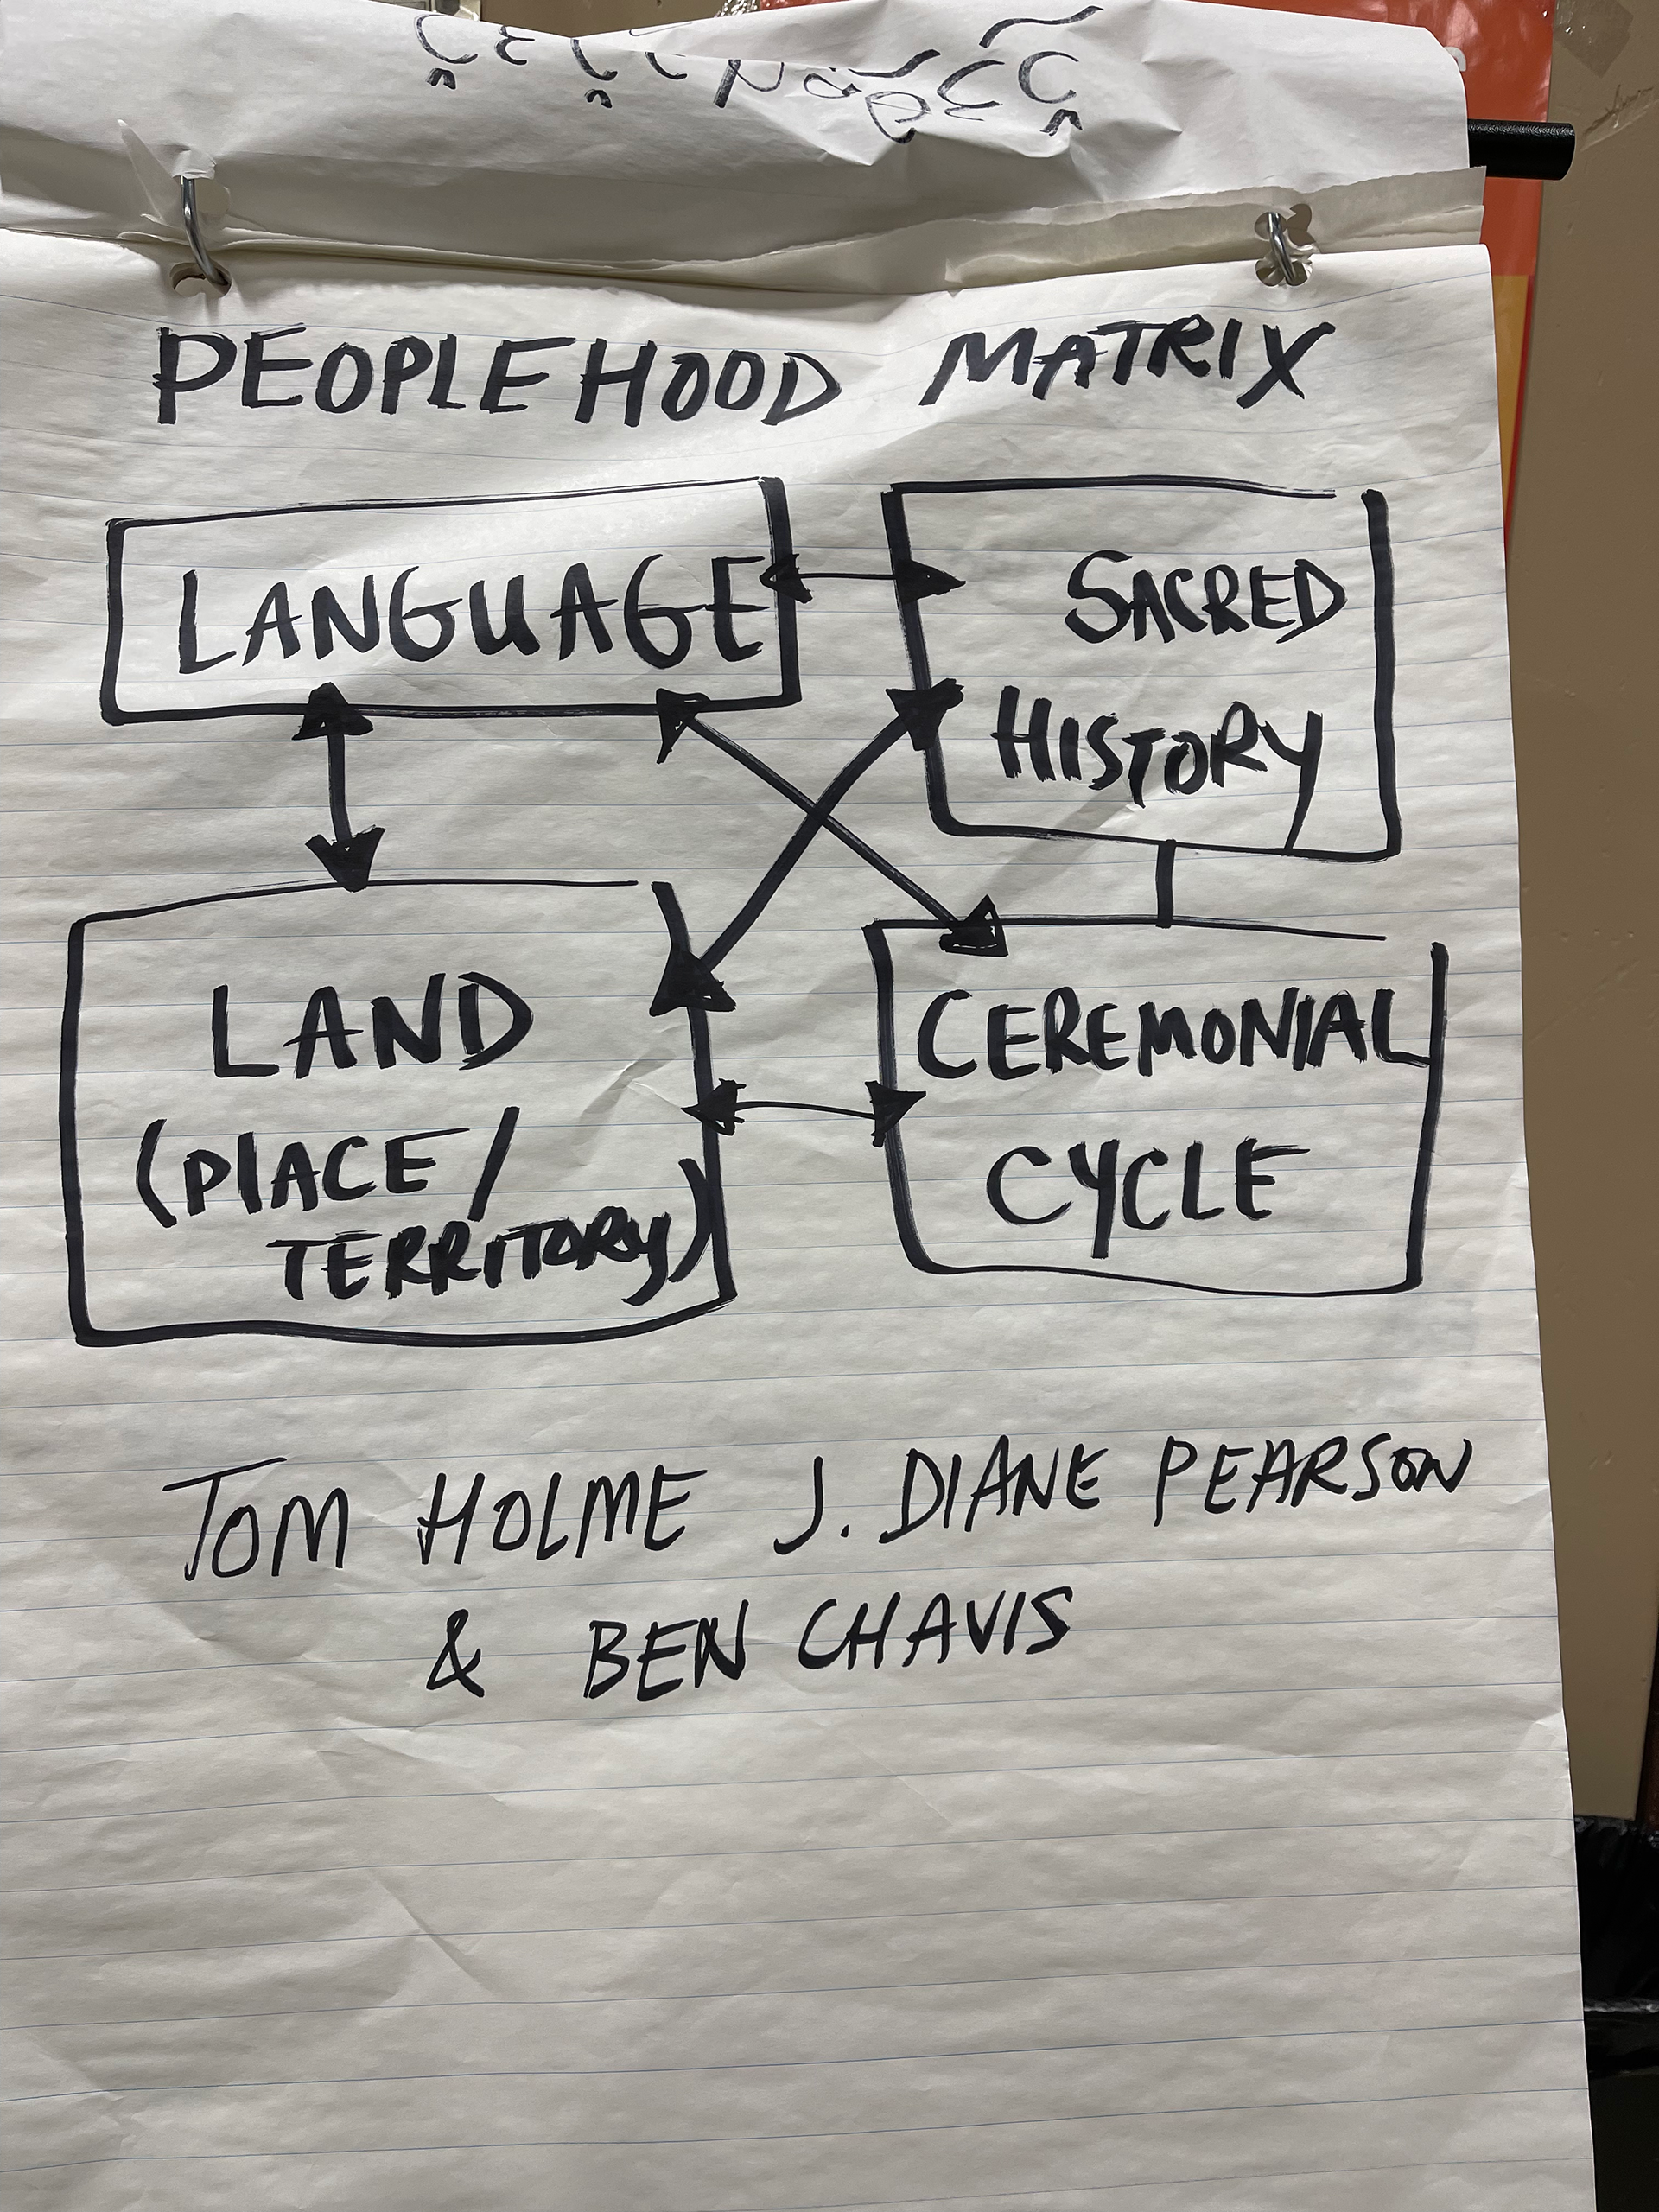 PEOPLEHOOD MATRIX
LANGUAGE
SACRED
HISTORY
LAND
(PlACE/
TERRITORY)
CEREMONIAL
CYCLE
TOM HOLME J. DIANE PEARSON
& BEN CHAVIS